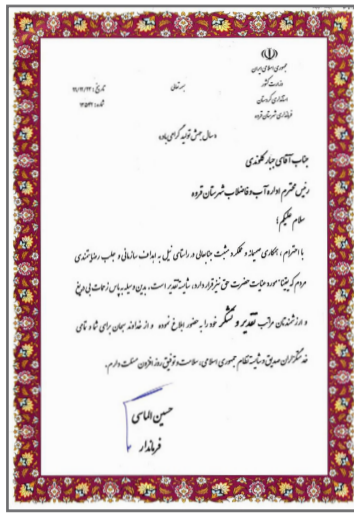 جمهوری اسلامی ایران
وزارت کشور
استانداری کردستان
فرمانداری شهرستان قروه
بسمه تعالی
تاریخ:
شماره:
«سال جهش تولید گرامی باد»
جناب آقای جبار کلوندی
رئیس محترم اداره آب و فاضلاب شهرستان قروه
سلام علیکم؛
با احترام، همکاری صمیمانه و عملکرد مثبت جنابعالی در راستای نیل به اهداف سازمانی و جلب رضایتمندی
مردم که یقینا مورد عنایت حضرت حق نیز قرار دارد، شایسته تقدیر است. بدین وسیله به پاس زحمات بی دریغ
و ارزشمندتان مراتب تقدیر و تشکر خود را به حضور ابلاغ نموده و از خداوند سبحان برای شما و تمامی
خدمتگزاران صدیق و شایسته نظام جمهوری اسلامی، سلامت و توفیق روز افزون مسئلت دارم.
حسین الماسی
فرماندار